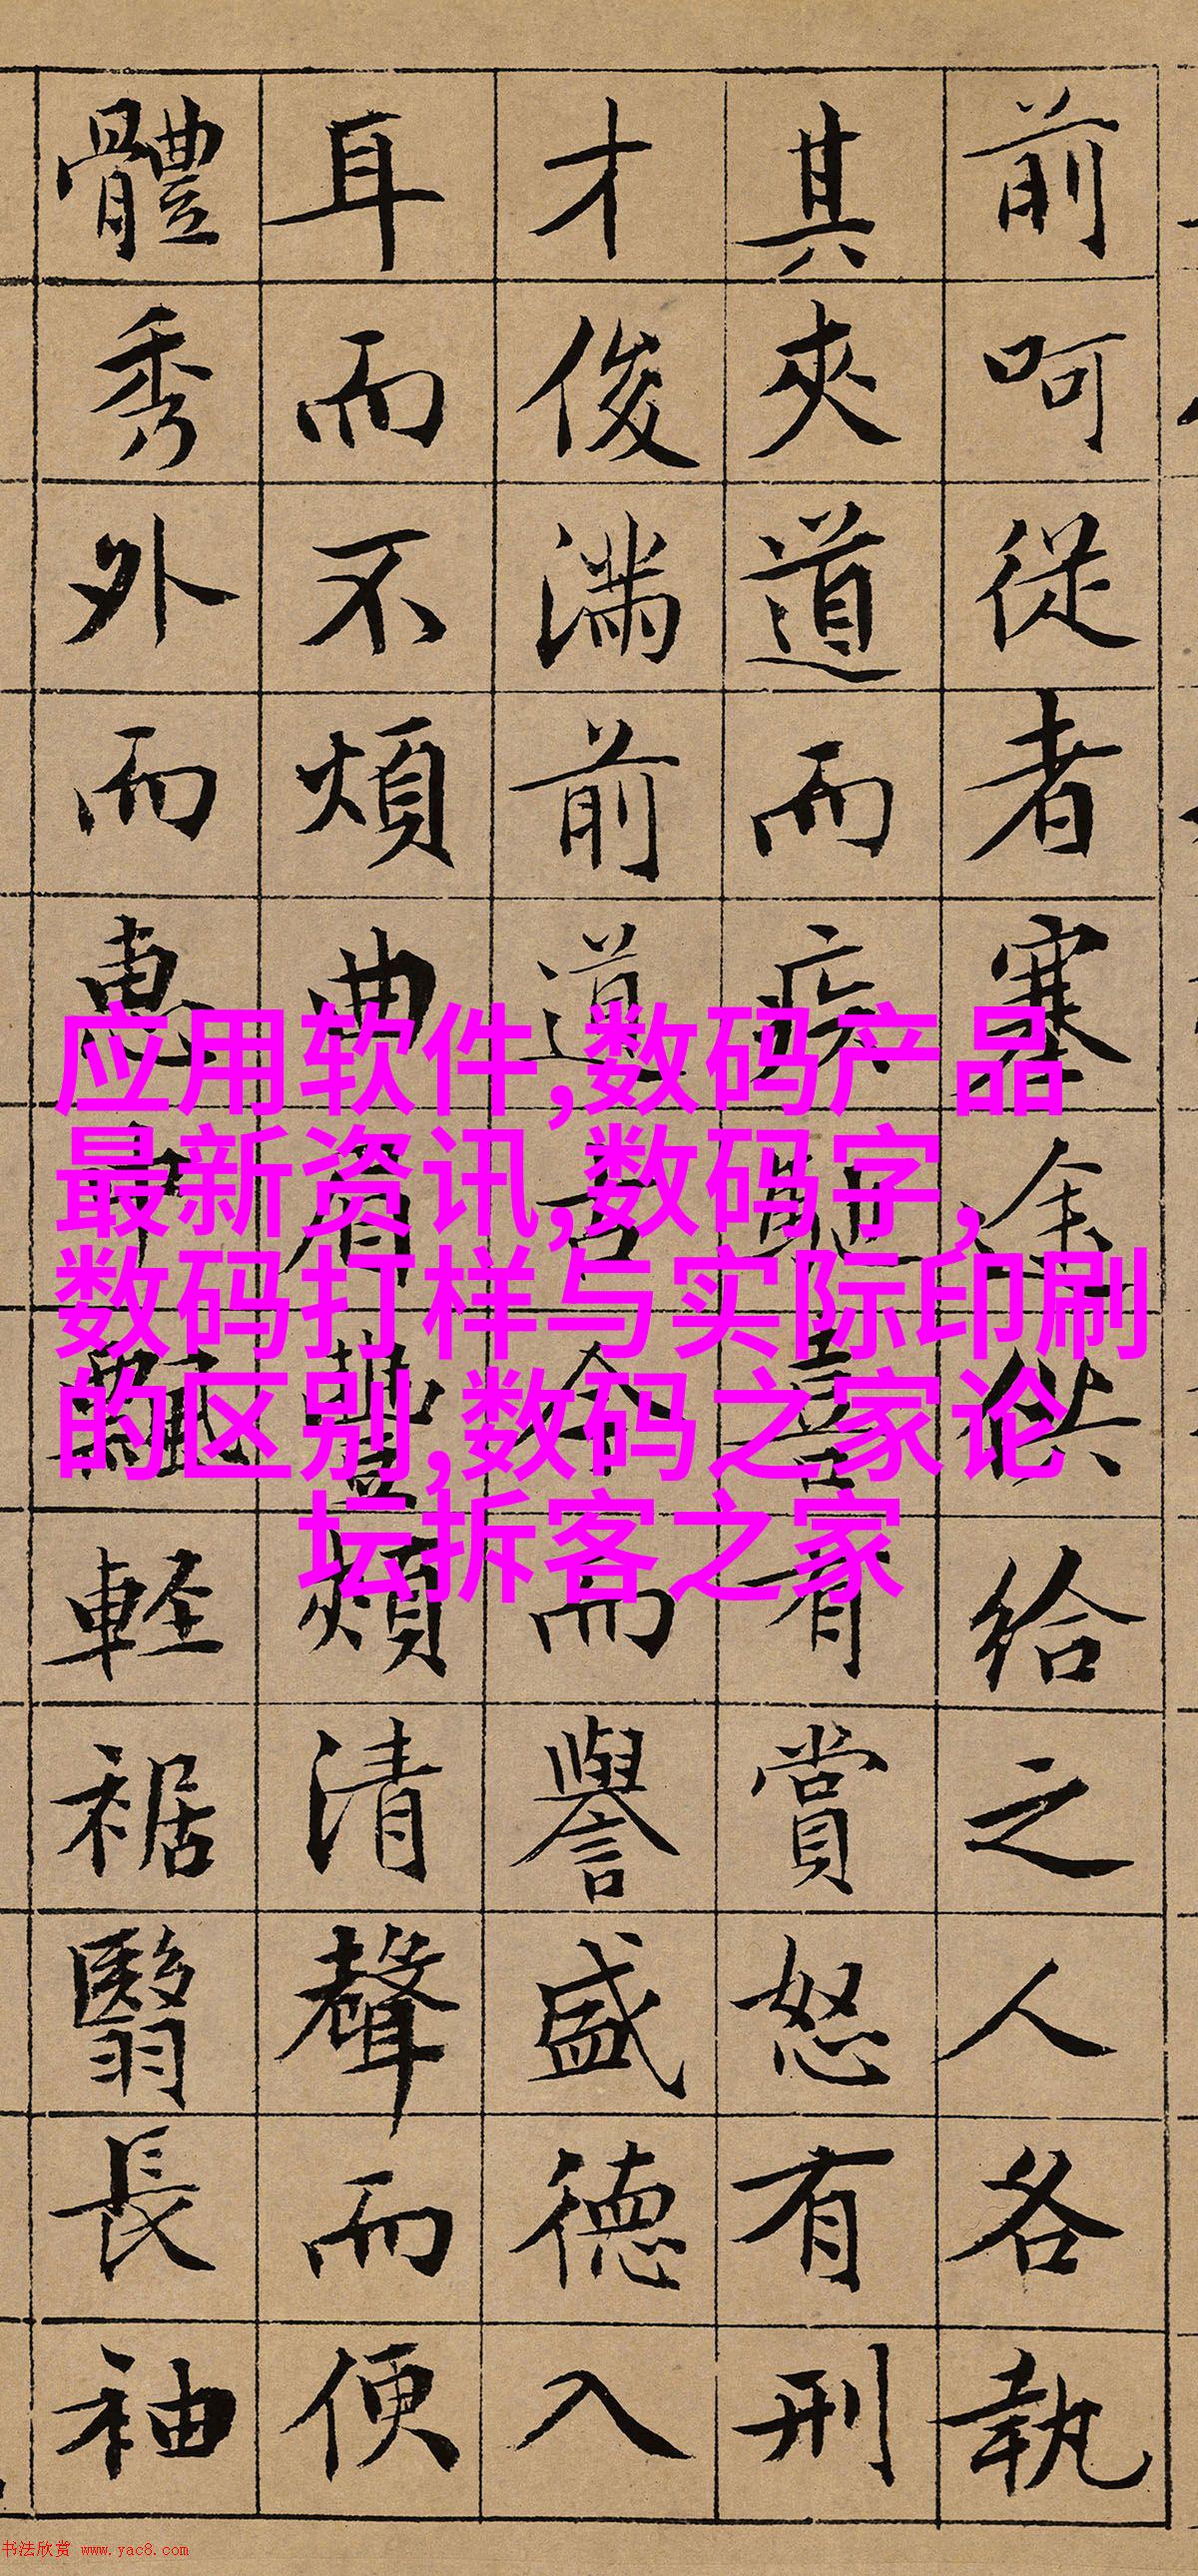 前呵從者塞途供給之人各執
其夾道而疾馳喜有賞怒有刑
才俊滿前道古今而譽盛德入
耳而不煩曲眉豐頰清聲而便
體秀外而惠中飄輕裾翳長袖
应用软件,数码产品
最新资讯,数码字,
数码打样与实际印刷
的区别,数码之家论
坛拆客之家
书法欣赏 www.yac8.com